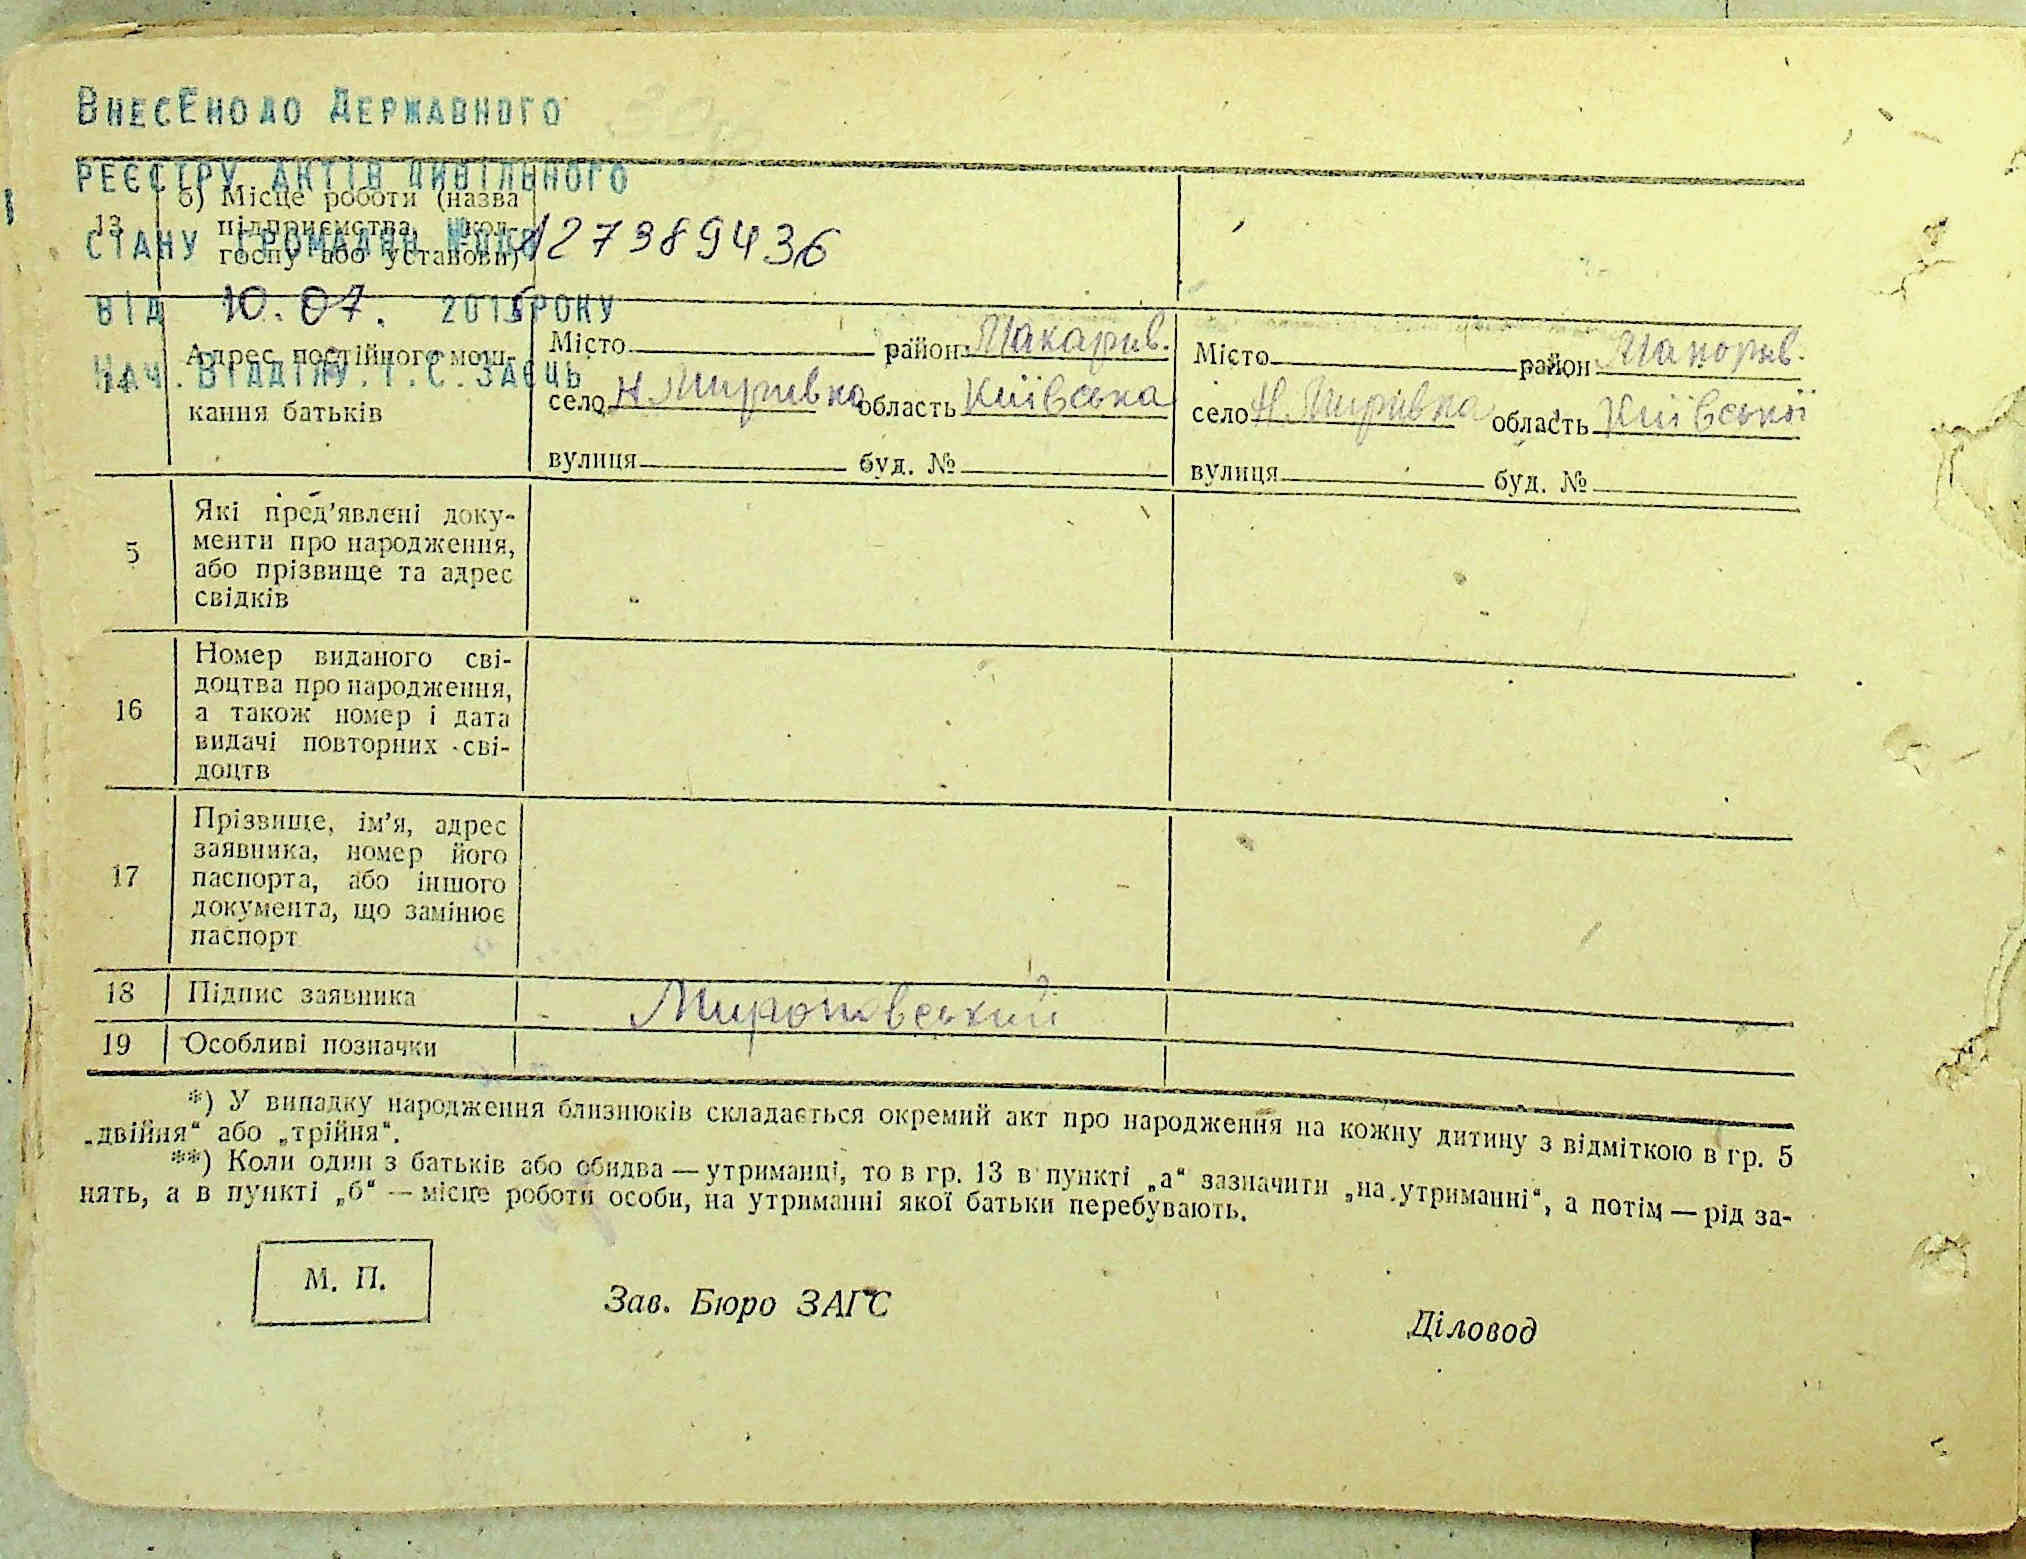 ВНЕСЕНО ДО ДЕРЖАВНОГО
РЕЄСТРУ АКТІВ ЦИВІЛЬНОГО
СТАНУ ГРОМАДЯН 1273894З6
ВІД 10.07. 2015 РОКУ
НАЧ. ВІДДІЛУ. Г.С. ЗАЄЦЬ
13
б) Місце роботи (назва
підприємства, кол-
госпу або установи)
14
Адрес постійного меш-
кання батьків
Місто район Макарів.
село Н Мирівка область Київська
вулиця буд. №
Місто район
село Н Мирівка область Київської
вулиця буд. №
5
Які пред’явлені доку-
менти про народження,
або прізвище та адрес
свідків
16
Номер виданого сві-
доцтва про народження,
а також номер і дата
видачі повторних сві-
доцтв
17
Прізвище, ім’я, адрес
заявника, номер його
паспорта, або іншого
документа, що замінює
паспорт
18 Підпис заявника
19 Особливі позначки
*) У випадку народження близнюків складається окремий акт про народження на кожну дитину з відміткою в гр. 5
„двійня“ або „трійня“.
**) Коли один з батьків або обидва — утриманці, то в гр. 13 в пункті „а“ зазначити „на утриманні“, а потім — рід за-
нять, а в пункті „б“ — місце роботи особи, на утриманні якої батьки перебувають.
М. П.
Зав. Бюро ЗАГС
Діловод